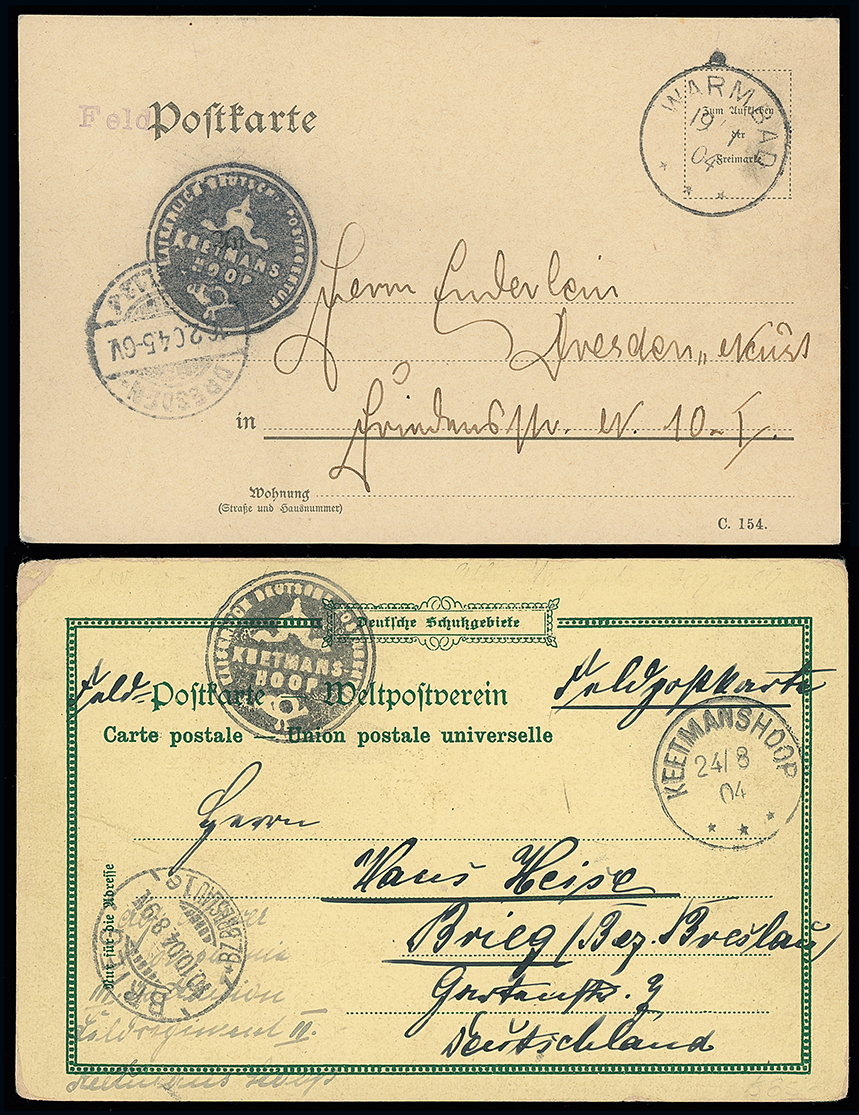 Feld Postkarte
WARMBAD
19/1
04
Zum Aufkleben
der
Freimarke
KAISERLICH DEUTSCHE POSTAGENTUR
KEETMANS
HOOP
An
DRESDEN
2.04.5-6V.
Herrn Enderlein
Dresden
in
10-I.
Wohnung
(Straße und Hausnummer)
C. 154.
KAISERLICH DEUTSCHE POSTAGENTUR
KEETMANS
HOOP
Deutsche Schutzgebiete
Feld-Postkarte — Weltpostverein
Feldpostkarte
Carte postale — Union postale universelle
KEETMANSHOOP
24/8
04
Herrn
Hans Heise
Nur für die Adresse
BRIEG
BZ. BRESLAU 1
10.10.04.8-9V.
Brieg (Bez. Breslau)
Gartenstr. 7
Deutschland
Feldregiment II.
Keetmanshoop